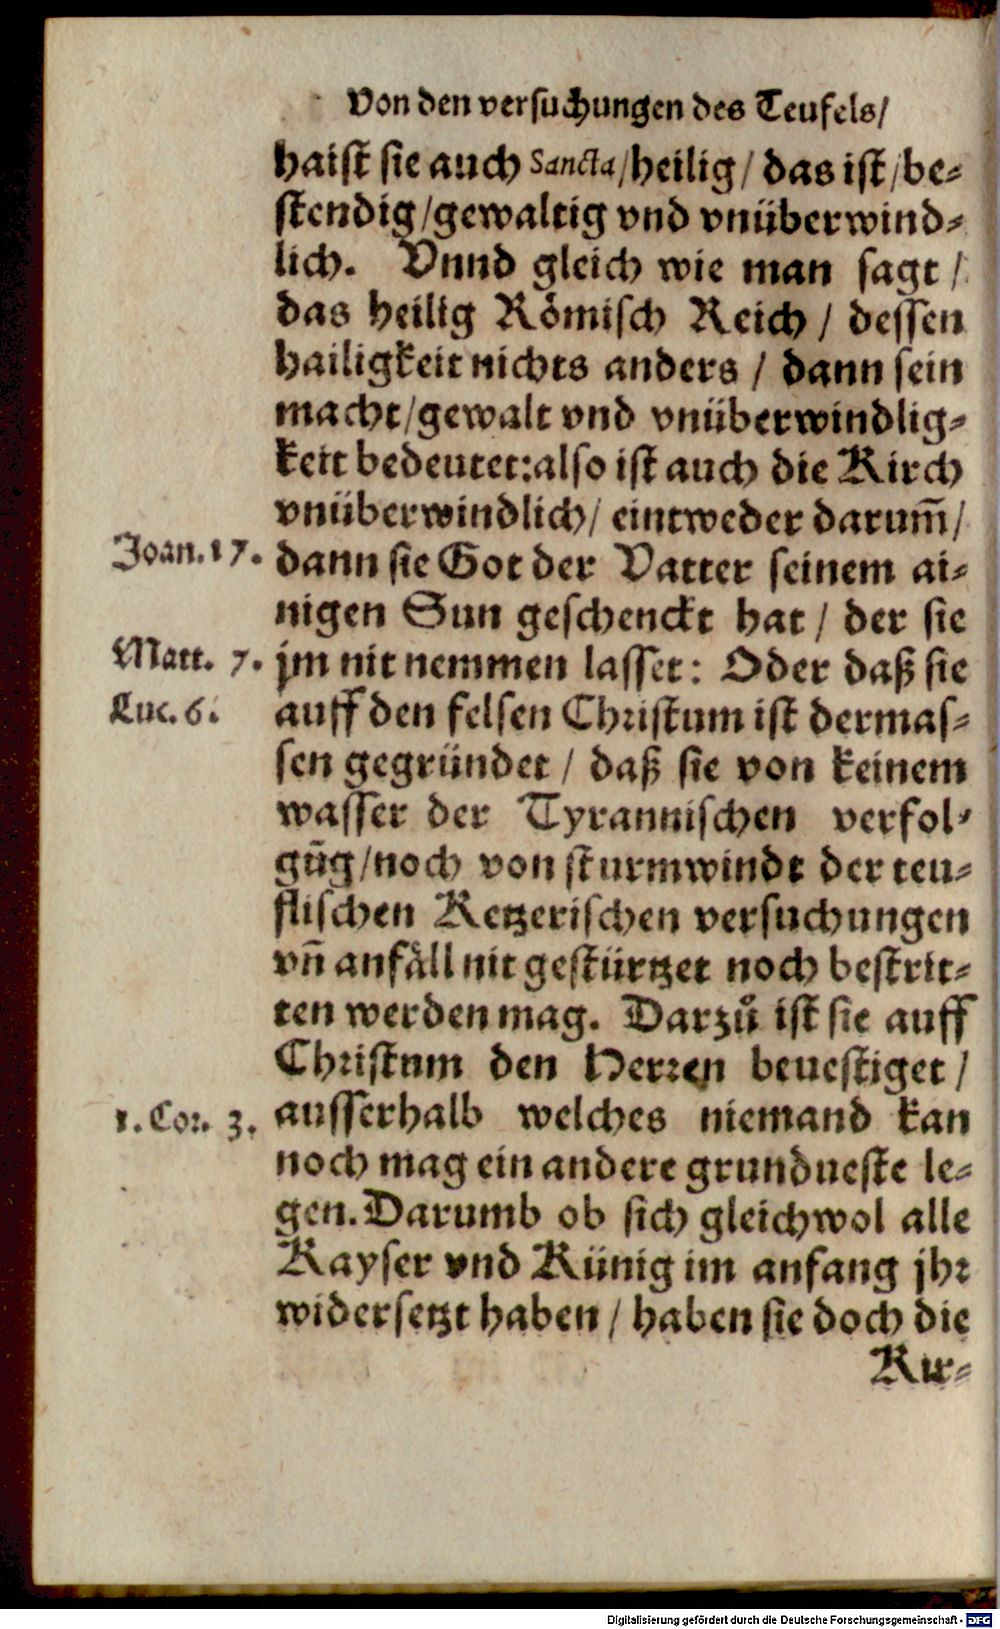 Von den versuchungen des Teufels/
haist sie auch Sancta/heilig/ das ist/be⸗
stendig/gewaltig vnd vnüberwind⸗
lich. Vnnd gleich wie man sagt/
das heilig Römisch Reich/ dessen
hailigkeit nichts anders/ dann sein
macht/gewalt vnd vnüberwindlig⸗
keit bedeutet:also ist auch die Kirch
vnüberwindlich/ eintweder darum̃/
Joan. 17. dann sie Got der Vatter seinem ai⸗
nigen Sun geschenckt hat/ der sie
Matt. 7. jm nit nemmen lasset: Oder daß sie
Luc. 6. auff den felsen Christum ist dermas⸗
sen gegründet/ daß sie von keinem
wasser der Tyrannischen verfol⸗
gũg/noch von sturmwindt der teu⸗
flischen Ketzerischen versuchungen
vñ anfäll nit gestürtzet noch bestrit⸗
ten werden mag. Darzů ist sie auff
Christum den Herren beuestiget/
1. Cor. 3. ausserhalb welches niemand kan
noch mag ein andere grundueste le⸗
gen. Darumb ob sich gleichwol alle
Kayser vnd Künig im anfang jhr
widersetzt haben/ haben sie doch die
Kir⸗
Digitalisierung gefördert durch die Deutsche Forschungsgemeinschaft - DFG